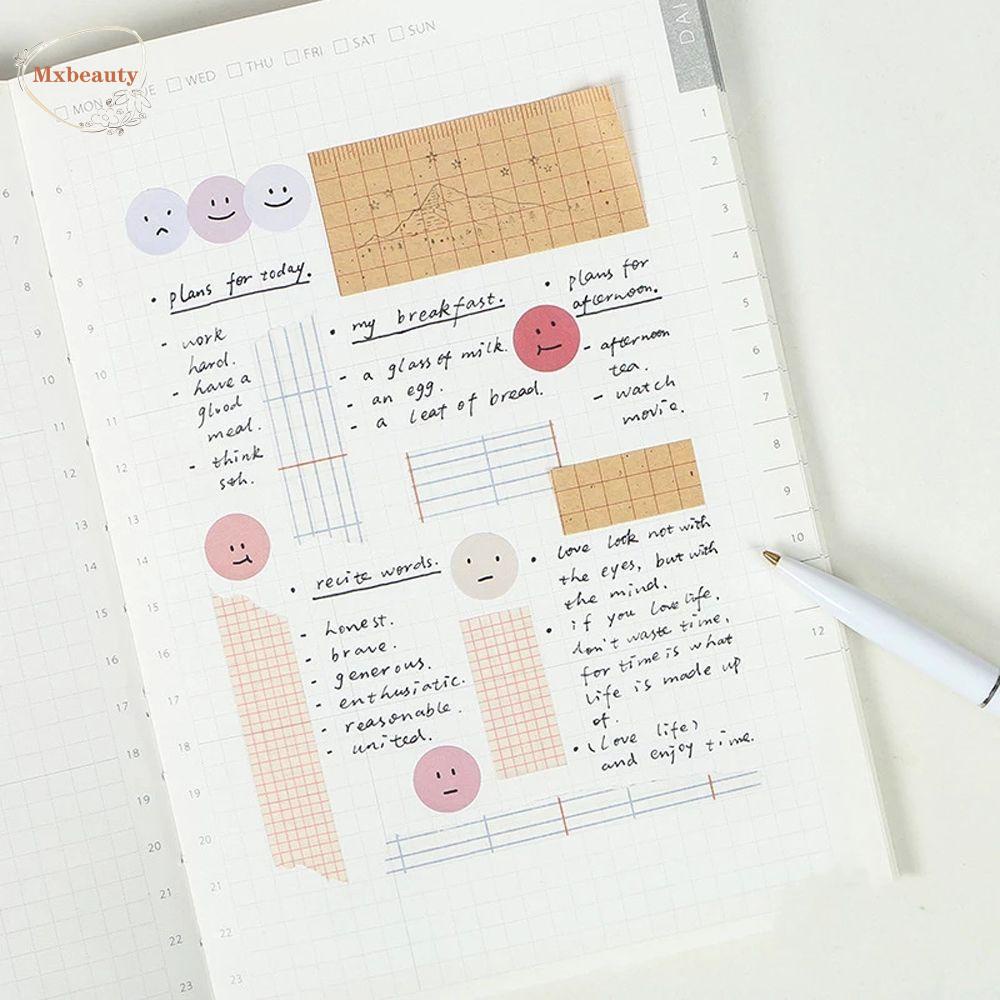 Mxbeauty
DAI
MON
TUE
WED
THU
FRI
SAT
SUN
plans for today.
- work
hard.
- have a
glood
meal.
- think
sth.
my breakfast.
- a glass of milk.
- an egg.
- a leaf of bread.
plans for
afternoon.
- afternoon
tea.
- watch
movie.
recite words.
- honest.
- brave.
- generous.
- enthusiatic.
- reasonable.
- united.
love look not with
the eyes, but with
the mind.
if you love life,
don't waste time,
for time is what
life is made up
of.
(love life)
and enjoy time.
6
7
8
9
10
11
12
13
14
15
16
17
18
19
20
21
22
23
6
7
8
9
10
11
12
13
14
15
16
17
18
19
20
21
22
23
1
2
3
4
5
6
7
8
9
10
12